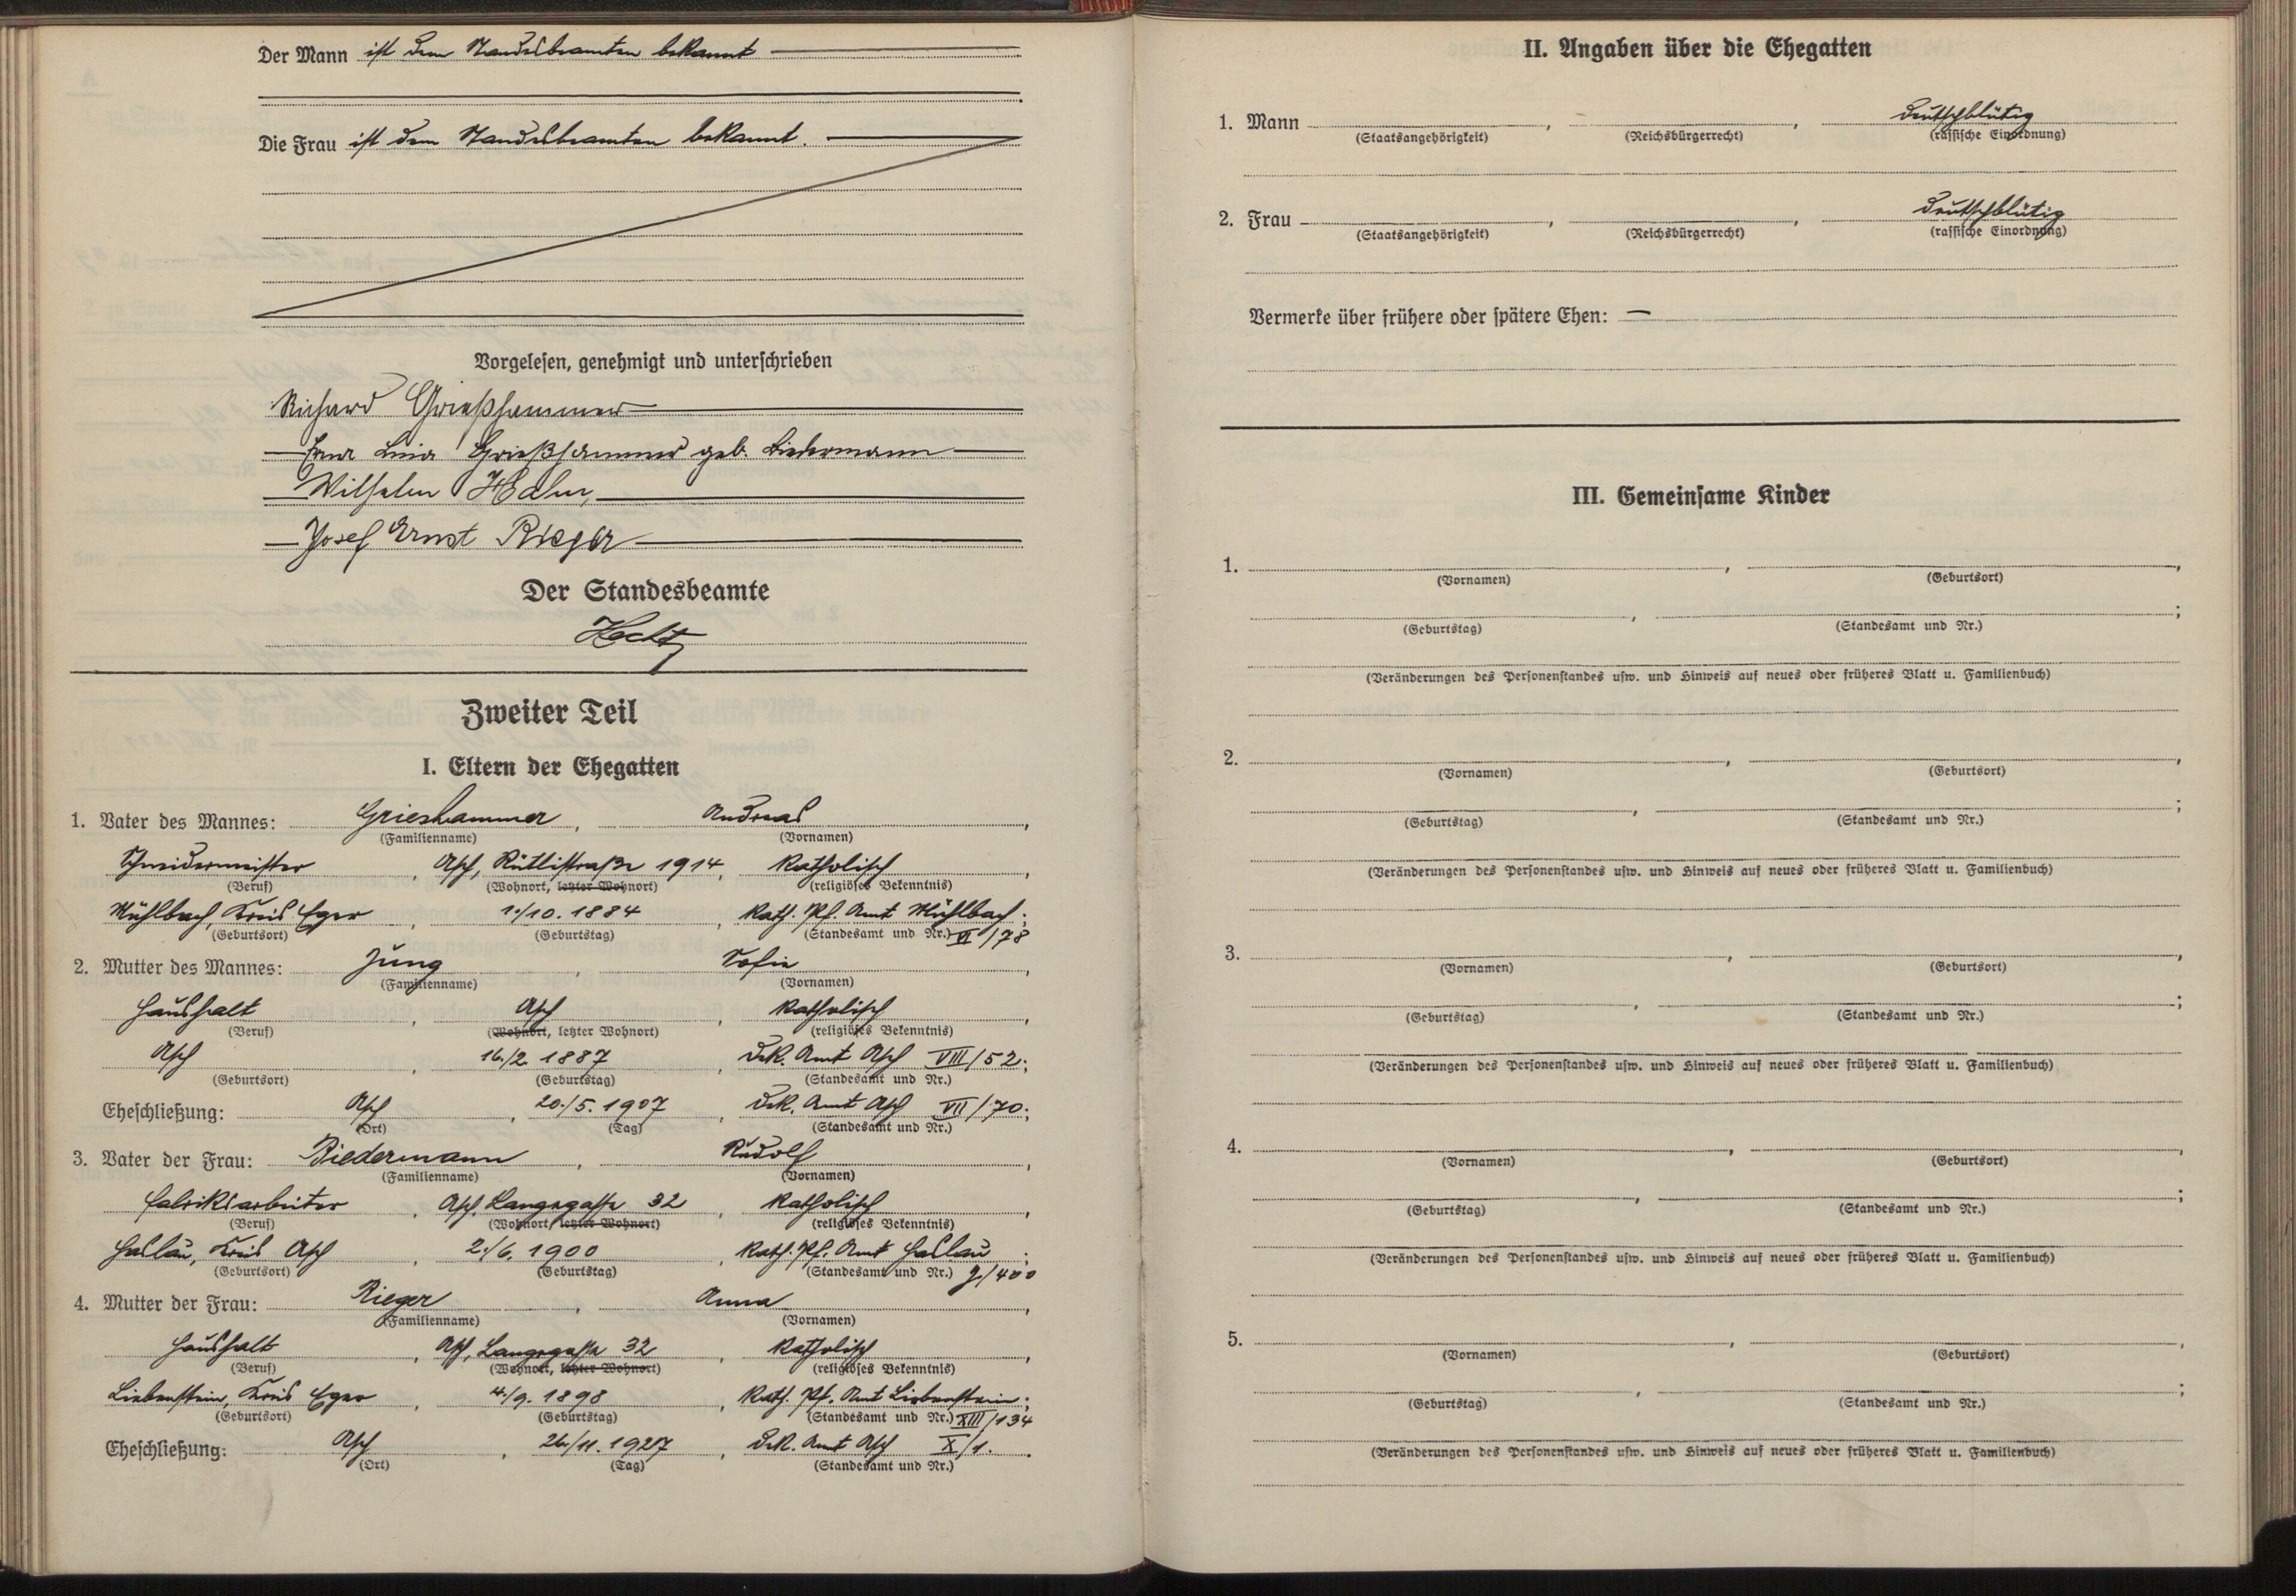 Der Mann ist dem Standesbeamten bekannt
Die Frau ist dem Standesbeamten bekannt.
Vorgelesen, genehmigt und unterschrieben
Richard Grießhammer
Lina Grießhammer geb. Biedermann
Wilhelm
Josef Ernst Rieger
Der Standesbeamte
Zweiter Teil
I. Eltern der Ehegatten
1. Vater des Mannes: Grieshammer, Andreas,
(Familienname) (Vornamen)
Schneidermeister, Asch, Rütlistraße 1914, katholisch,
(Beruf) (Wohnort, letzter Wohnort) (religiöses Bekenntnis)
Mühlbach, Kreis Eger, 1./10. 1884, Kath. Pf. Amt Mühlbach;
(Geburtsort) (Geburtstag) (Standesamt und Nr.) VI/78
2. Mutter des Mannes: Jung, Sofie,
(Familienname) (Vornamen)
Haushalt, Asch, katholisch,
(Beruf) (Wohnort, letzter Wohnort) (religiöses Bekenntnis)
Asch, 16./2. 1887, Dek. Amt Asch VIII/52;
(Geburtsort) (Geburtstag) (Standesamt und Nr.)
Eheschließung: Asch, 20./5. 1907, Dek. Amt Asch VII/70;
(Ort) (Tag) (Standesamt und Nr.)
3. Vater der Frau: Biedermann, Rudolf,
(Familienname) (Vornamen)
Fabriksarbeiter, Asch, Langegasse 32, katholisch,
(Beruf) (Wohnort, letzter Wohnort) (religiöses Bekenntnis)
Haslau, Kreis Asch, 2./6. 1900, Kath. Pf. Amt Haslau;
(Geburtsort) (Geburtstag) (Standesamt und Nr.) /400
4. Mutter der Frau: Rieger, Anna,
(Familienname) (Vornamen)
Haushalt, Asch, Langegasse 32, katholisch,
(Beruf) (Wohnort, letzter Wohnort) (religiöses Bekenntnis)
Liebenstein, Kreis Eger, 4./9. 1898, Kath. Pf. Amt Liebenstein;
(Geburtsort) (Geburtstag) (Standesamt und Nr.) XIII/134
Eheschließung: Asch, 26./11. 1927, Dek. Amt Asch X/1.
(Ort) (Tag) (Standesamt und Nr.)
II. Angaben über die Ehegatten
1. Mann , , deutschblütig
(Staatsangehörigkeit) (Reichsbürgerrecht) (rassische Einordnung)
2. Frau , , deutschblütig
(Staatsangehörigkeit) (Reichsbürgerrecht) (rassische Einordnung)
Vermerke über frühere oder spätere Ehen: —
III. Gemeinsame Kinder
1. , ,
(Vornamen) (Geburtsort)
, ;
(Geburtstag) (Standesamt und Nr.)
(Veränderungen des Personenstandes usw. und Hinweis auf neues oder früheres Blatt u. Familienbuch)
2. , ,
(Vornamen) (Geburtsort)
, ;
(Geburtstag) (Standesamt und Nr.)
(Veränderungen des Personenstandes usw. und Hinweis auf neues oder früheres Blatt u. Familienbuch)
3. , ,
(Vornamen) (Geburtsort)
, ;
(Geburtstag) (Standesamt und Nr.)
(Veränderungen des Personenstandes usw. und Hinweis auf neues oder früheres Blatt u. Familienbuch)
4. , ,
(Vornamen) (Geburtsort)
, ;
(Geburtstag) (Standesamt und Nr.)
(Veränderungen des Personenstandes usw. und Hinweis auf neues oder früheres Blatt u. Familienbuch)
5. , ,
(Vornamen) (Geburtsort)
, ;
(Geburtstag) (Standesamt und Nr.)
(Veränderungen des Personenstandes usw. und Hinweis auf neues oder früheres Blatt u. Familienbuch)